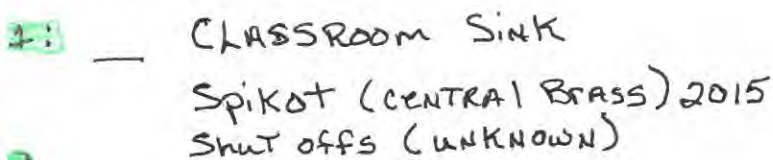 1: _ CLASSROOM SINK
Spikot (CENTRAl BrASS) 2015
Shut offs (UNKNOWN)